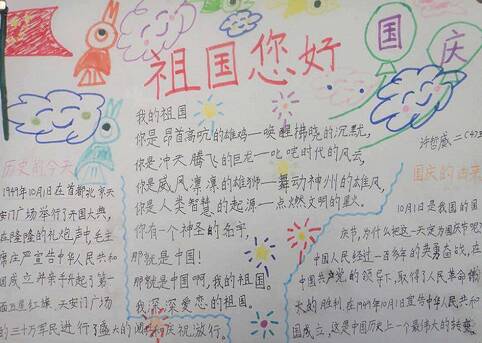 祖国您好
国庆
我的祖国
你是昂首高吭的雄鸡—唤醒拂晓的沉默,
你是冲天腾飞的巨龙—叱咤时代的风云,
你是威风凛凛的雄狮—舞动神州的雄风,
你是人类智慧的起源—点燃文明的星火。
你有一个神圣的名字,
那就是中国!
那就是中国啊,我的祖国。
我深深爱恋的祖国。
历史的今天
1949年10月1日在首都北京天
安门广场举行了开国大典,
在隆隆的礼炮声中,毛主
席庄严宣告中华人民共和
国成立并亲手升起了第一
面五星红旗。天安门广场
的三十万军民进行了盛大的阅兵和庆祝游行。
二(4)
国庆的由来
10月1日是我国的国
庆节,为什么把这一天定为国庆节呢?
中国人民经过一百多年的英勇奋战,在
中国共产党的领导下,取得了人民革命的伟
大的胜利,在1949年10月1日宣告中华人民共和
国成立,这是中国历史上一个最伟大的转变。